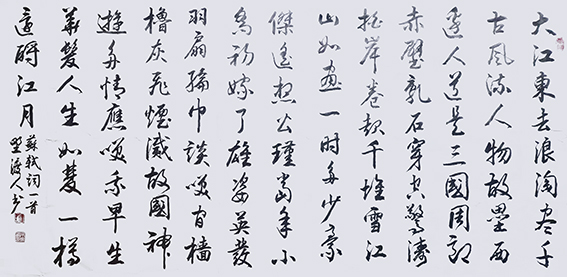 大江東去浪淘盡千
古風流人物故壘西
邊人道是三國周郎
赤壁亂石穿空驚濤
拍岸卷起千堆雪江
山如畫一時多少豪
傑遙想公瑾當年小
喬初嫁了雄姿英發
羽扇綸巾談笑間檣
櫓灰飛煙滅故國神
遊多情應笑我早生
華髮人生如夢一樽
還酹江月
蘇軾詞一首
人書